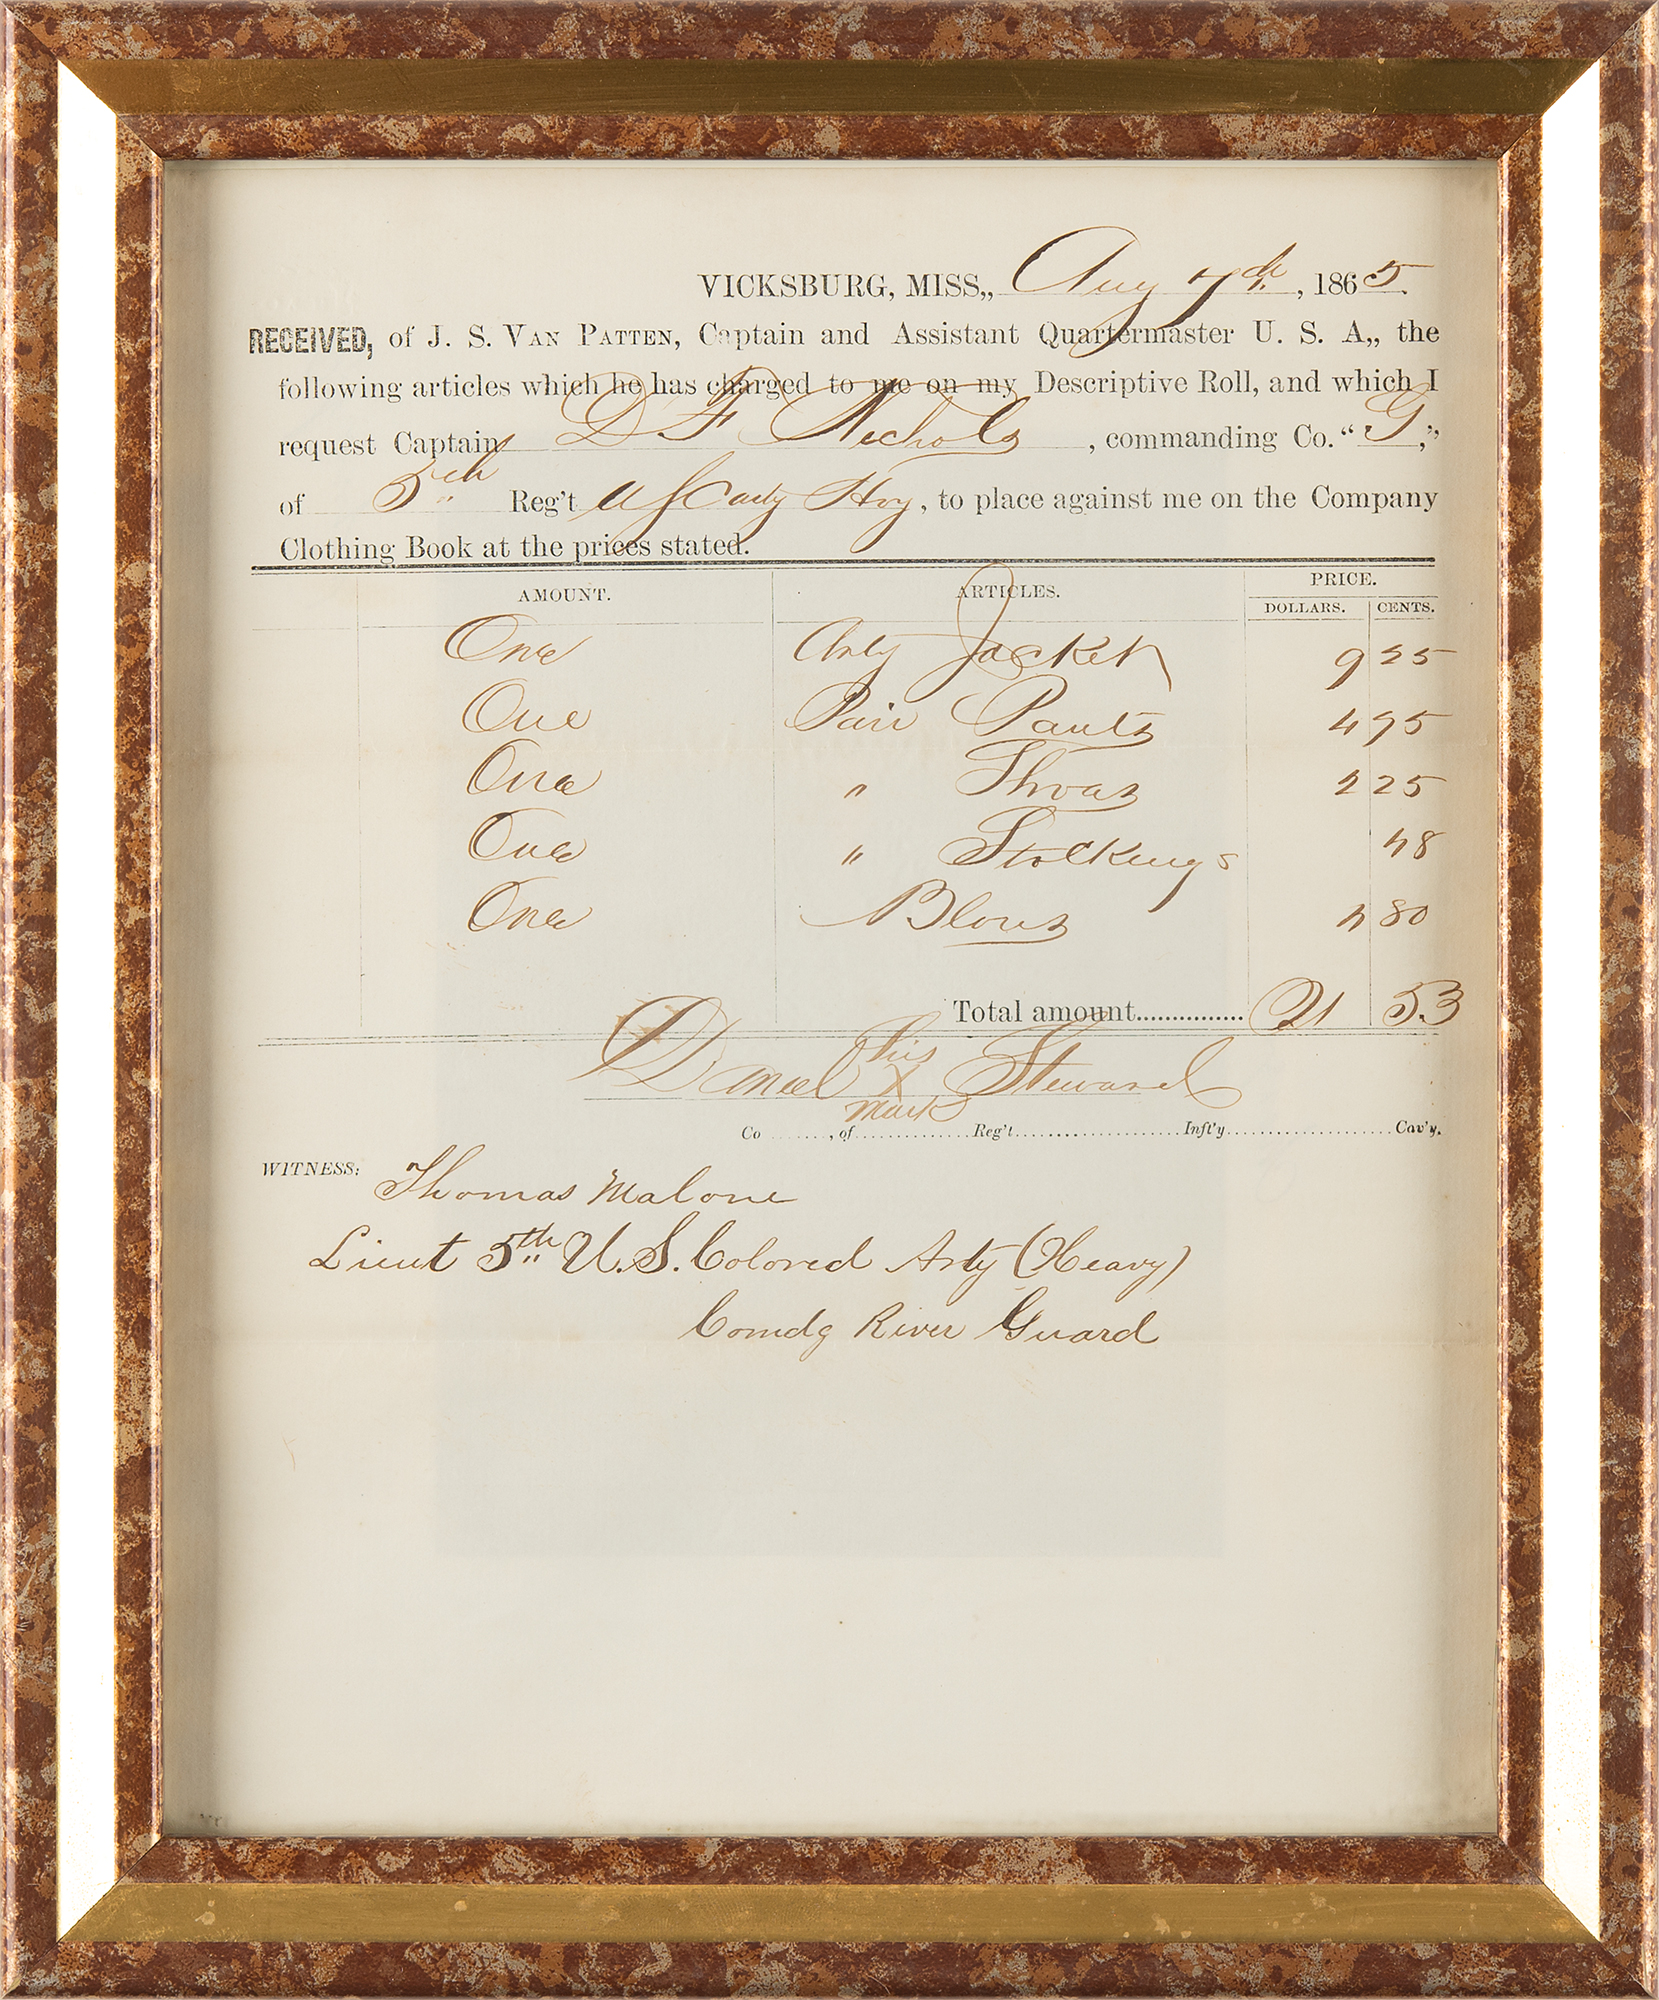 VICKSBURG, MISS,, Aug 7th. , 1865.
RECEIVED, of J. S. VAN PATTEN, Captain and Assistant Quartermaster U. S. A,, the
following articles which he has charged to me on my Descriptive Roll, and which I
request Captain D F Nichols , commanding Co. "G,"
of 5th Reg't U S Hvy , to place against me on the Company
Clothing Book at the prices stated.
AMOUNT. ARTICLES. PRICE.
DOLLARS. CENTS.
One Arty Jacket 9 25
One Pair Pants 4 75
One " Shoes 2 25
One " Stockings 48
One Blous 4 80
Total amount............... 21 53
his
Daniel X Steward
mark
Co ........, of .............. Reg't ..................... Inft'y ..................... Cav'y.
WITNESS: Thomas Malone
Lieut 5th U.S. Colored Arty (Heavy)
Comdg River Guard